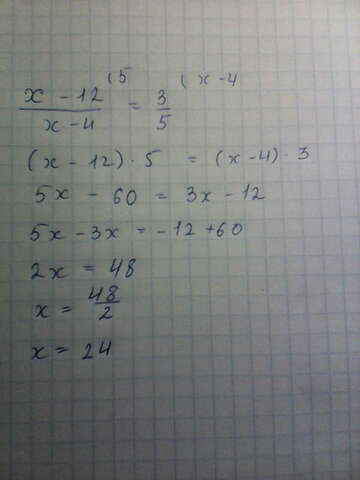 (5 (x-4
x - 12 / x - 4 = 3 / 5
(x - 12) · 5 = (x - 4) · 3
5x - 60 = 3x - 12
5x - 3x = - 12 + 60
2x = 48
x = 48 / 2
x = 24